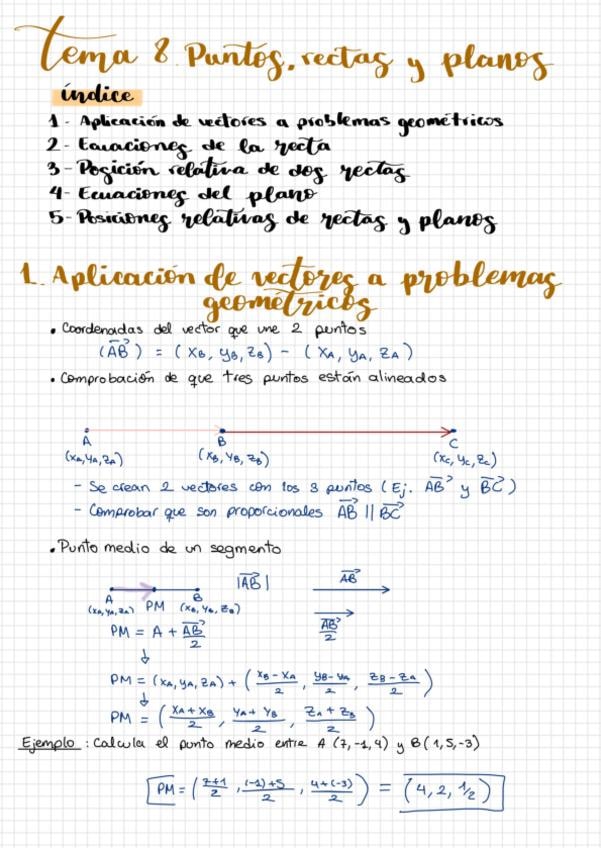 Tema 8. Puntos, rectas y planos
índice
1- Aplicación de vectores a problemas geométricos
2- Ecuaciones de la recta
3- Posición relativa de dos rectas
4- Ecuaciones del plano
5- Posiciones relativas de rectas y planos
1. Aplicación de vectores a problemas
geométricos
• Coordenadas del vector que une 2 puntos
(AB⃗) = (XB, YB, ZB) - (XA, YA, ZA)
• Comprobación de que tres puntos están alineados
A B C
(XA, YA, ZA) (XB, YB, ZB) (XC, YC, ZC)
- Se crean 2 vectores con los 3 puntos (Ej. AB⃗ y BC⃗)
- Comprobar que son proporcionales AB⃗ || BC⃗
• Punto medio de un segmento
|AB⃗| AB⃗
A PM B
(XA, YA, ZA) (XB, YB, ZB) AB⃗/2
PM = A + AB⃗/2
↓
PM = (XA, YA, ZA) + (XB - XA/2, YB - YA/2, ZB - ZA/2)
↓
PM = (XA + XB/2, YA + YB/2, ZA + ZB/2)
Ejemplo: Calcula el punto medio entre A (7, -1, 4) y B (1, 5, -3)
PM = (7+1/2, (-1)+5/2, 4+(-3)/2) = (4, 2, 1/2)